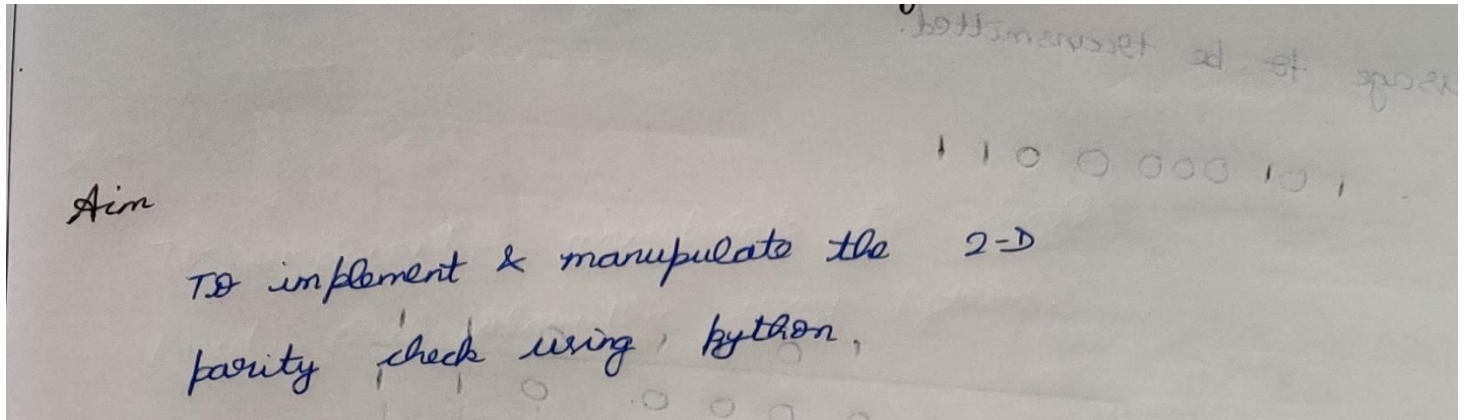 Aim
To implement & manupulate the 2-D
parity check using python,